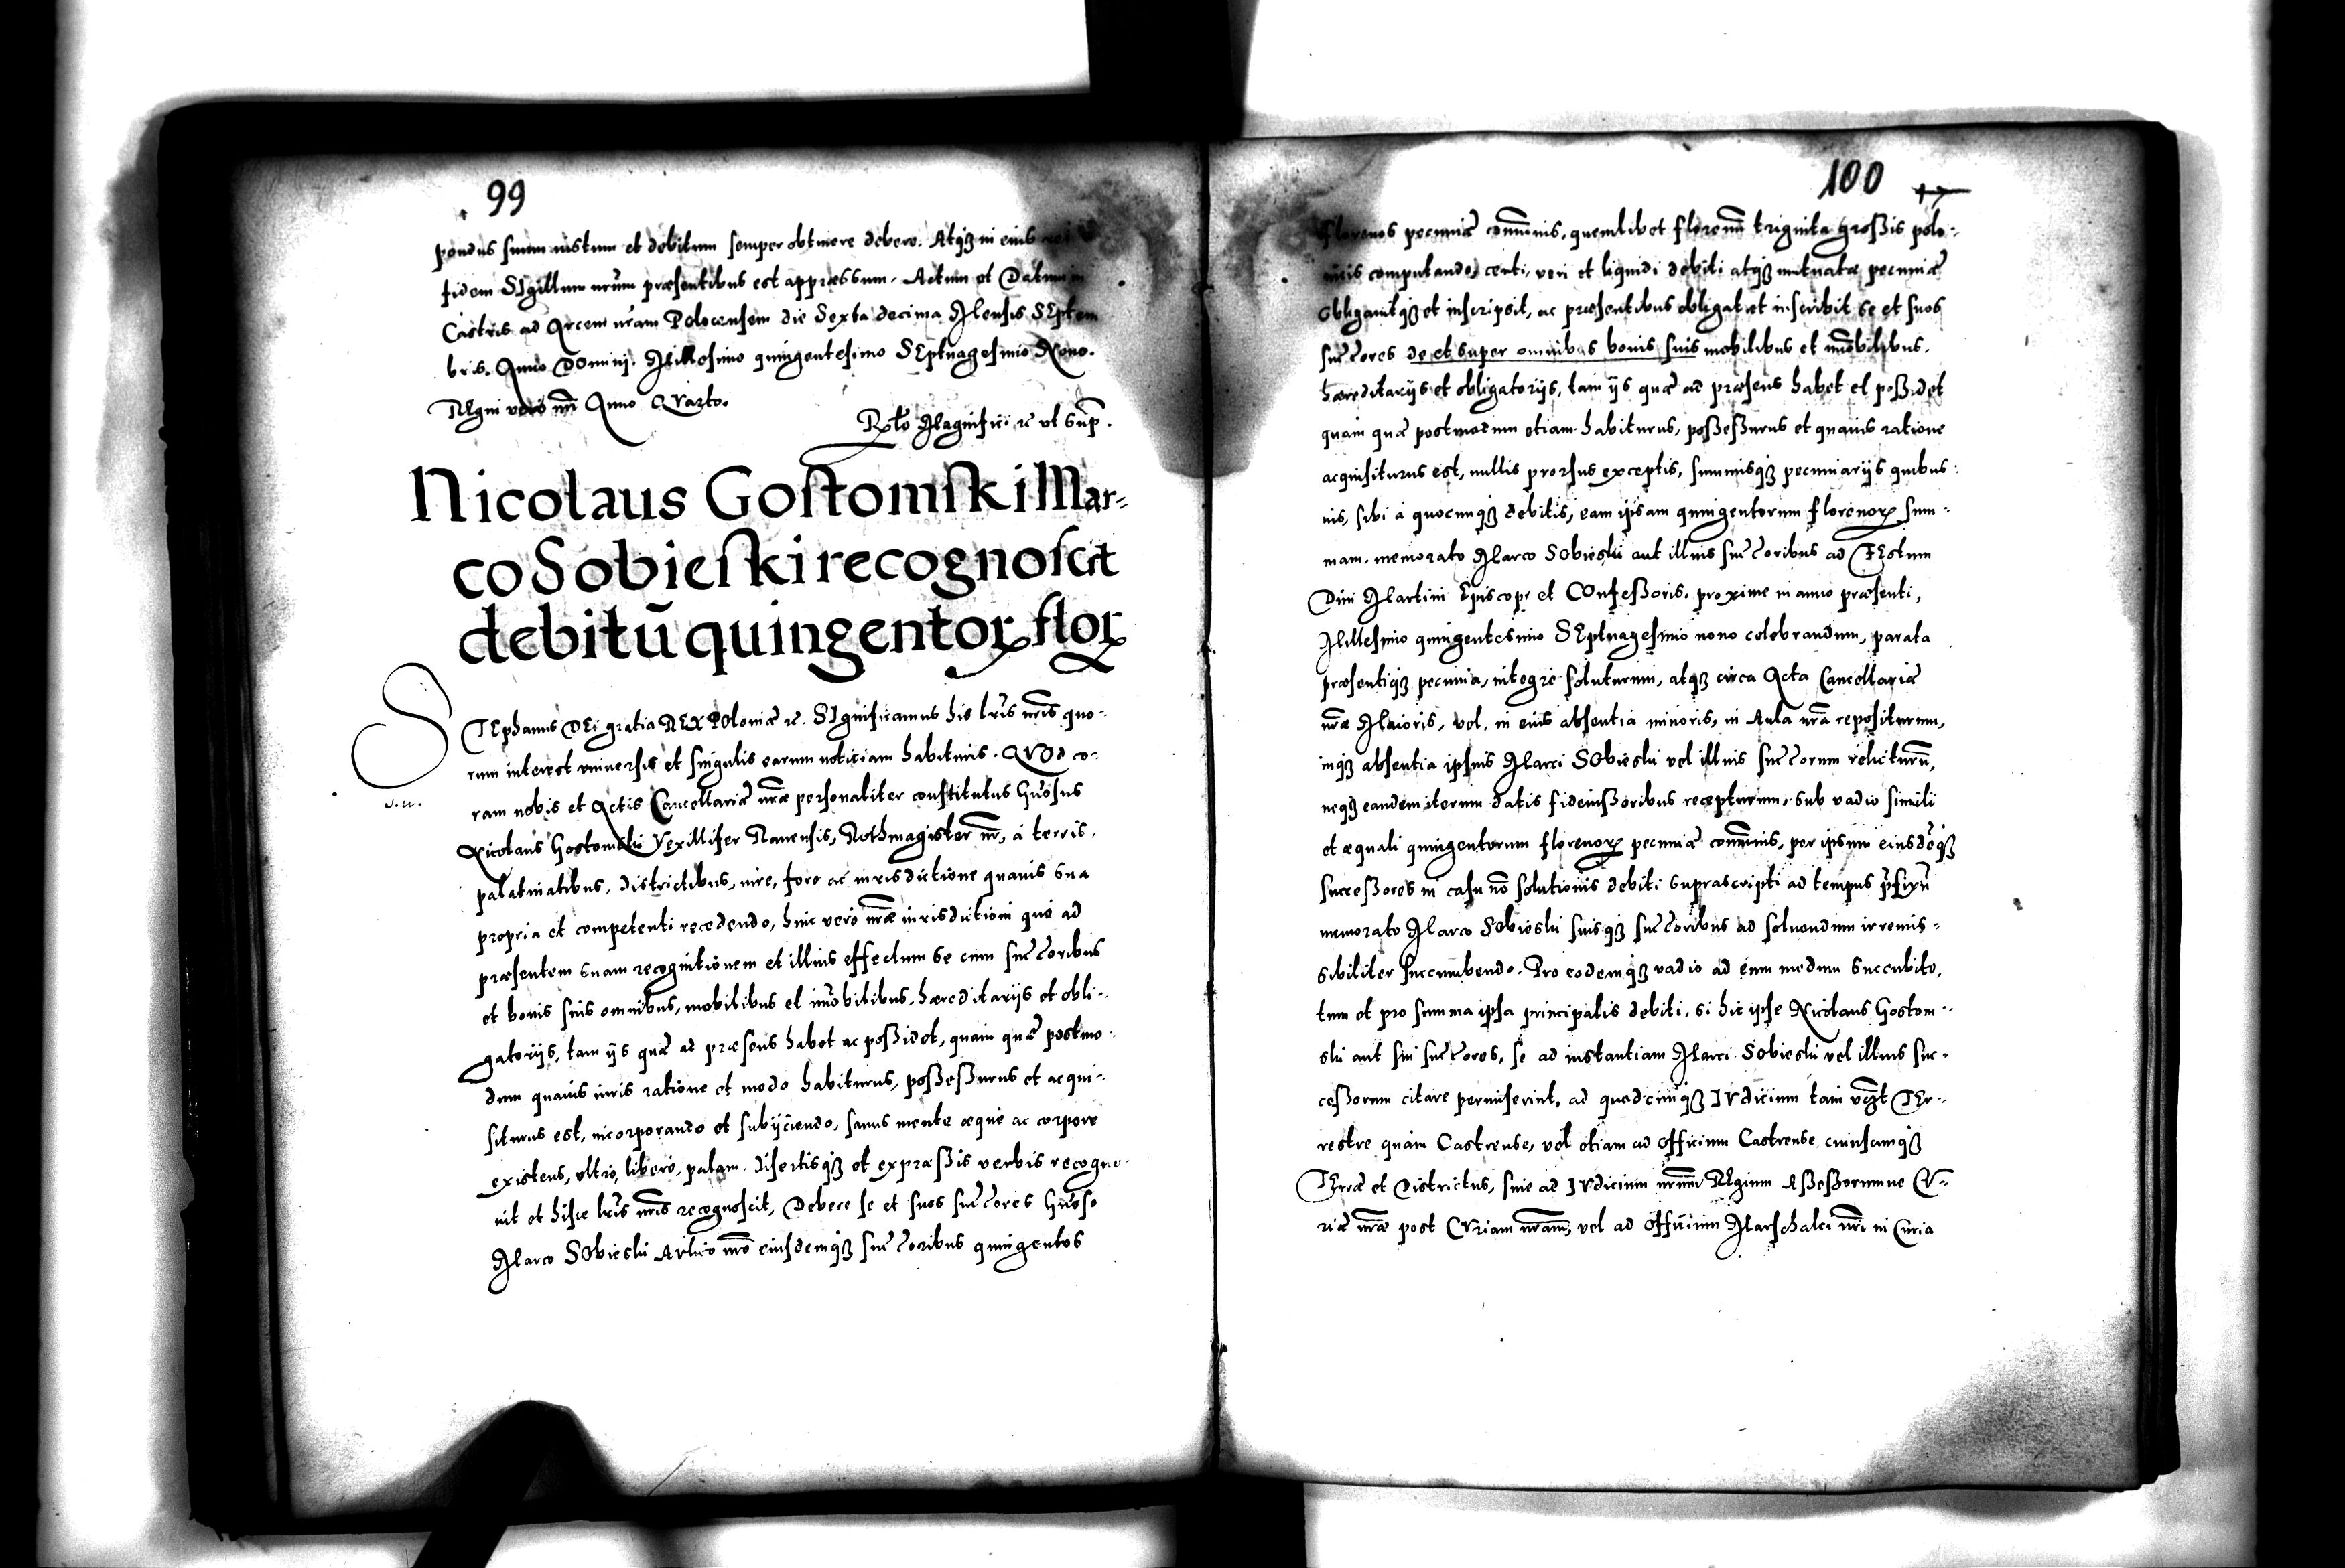 99
pondus suum iustum et debitum semper obtinere debere. Atq3 in eius rei
fidem SIgillum nrūm præsentibus est appræssum. Actum et Datum in
Castris ad Arcem nrām Polocensem die Sexta decima Mensis SEptem
bris. Anno DOmini. Millesimo quingentesimo SEptuagesimo Nono.
REgni vero nrī Anno QVarto.
Rlto Magnifici rc vt Sup.
Nicolaus Gostomski Mar-
co Sobieski recognoscit
debitū quingentorꝝ florꝝ
STEphanus DEi gratia REX POloniæ rc. SIgnificamus his lrīs nrīs quo-
rum interest vniuersis et singulis earum noticiam habituris. QVOd co-
ram nobis et Actis Cancellariæ nrāe personaliter constitutus Gnōsus
Nicolaus Gostomski Vexillifer Rauensis, Rothmagister nr̄, à terris,
palatinatibus, districtibus, iure, foro ac iurisdictione quauis sua
propria et competenti recedendo, huic vero nrāe iurisdictioni quò ad
præsentem suam recognitionem et illius effectum se cum succ̄oribus
et bonis suis omnibus, mobilibus et im̄obilibus, hæreditarijs et obli-
gatorijs, tam ijs quæ ad præsens habet ac possidet, quàm quæ postmo-
dum quauis iuris ratione et modo habiturus, possessurus et acqui-
siturus est, incorporando et subijciendo, sanus mente æquè ac corpore
existens, vltrò, liberè, palàm, disertisq3 et expræssis verbis recogno-
uit et hisce lrīs nrīs recognoscit, Debere se et suos succ̄ores Gnōso
Marco SObieski Aulico nrō eiusdemq3 succ̄oribus quingentos
100 17
florenos pecuniæ com̄unis, quemlibet florenū triginta grossis polo-
nicis computando, certi, veri et liquidi debiti atq3 mutuatæ pecuniæ
Obligauitq3 et inscripsit, ac præsentibus obligat et inscribit se et suos
succ̄ores de et super omnibus bonis suis mobilibus et im̄obilibus,
hæreditarijs et obligatorijs, tam ijs quæ ad præsens habet et possidet
quàm quæ postmodum etiam habiturus, possessurus et quauis ratione
acquisiturus est, nullis prorsus exceptis, summisq3 pecuniarijs quibus-
uis, sibi à quocunq3 debitis, eam ipsam quingentorum florenorꝝ sum-
mam, memorato Marco SObieski aut illius succ̄oribus ad FEstum
Diui Martini Episcopi et COnfessoris, proximè in anno præsenti,
Millesimo quingentesimo SEptuagesimo nono celebrandum, parata
præsentiq3 pecunia, integrè soluturum, atq3 circa Acta Cancellariæ
nrāe Maioris, vel, in eius absentia minoris, in Aula nrā repositurum,
inq3 absentia ipsius Marci SObieski vel illius succ̄orum relicturū,
neq3 eandem iterum datis fideiussoribus recepturum, sub vadio simili
et æquali quingentorum florenorꝝ pecuniæ com̄unis, per ipsum eiusdēq3
successores in casu nō solutionis debiti suprascripti ad tempus p̄fixū
memorato Marco SObieski suisq3 succ̄oribus ad soluendum irremis-
sibiliter succumbendo. Pro eodemq3 vadio ad eum modum succubito,
tum et pro summa ipsa principalis debiti, si hic ipse Nicolaus Gostom-
ski aut sui succ̄ores, se ad instantiam Marci SObieski vel illius suc-
cessorum citare permiserint, ad quodcunq3 IVdicium tam vz̄t TEr-
restre quàm Castrense, vel etiam ad officium Castrense cuiuscunq3
TErræ et Districtus, siue ad IVdicium nrūm REgium Assessorumue CV-
riæ nrāe post CVriam nrām, vel ad officium Marschalci nrī in Curia